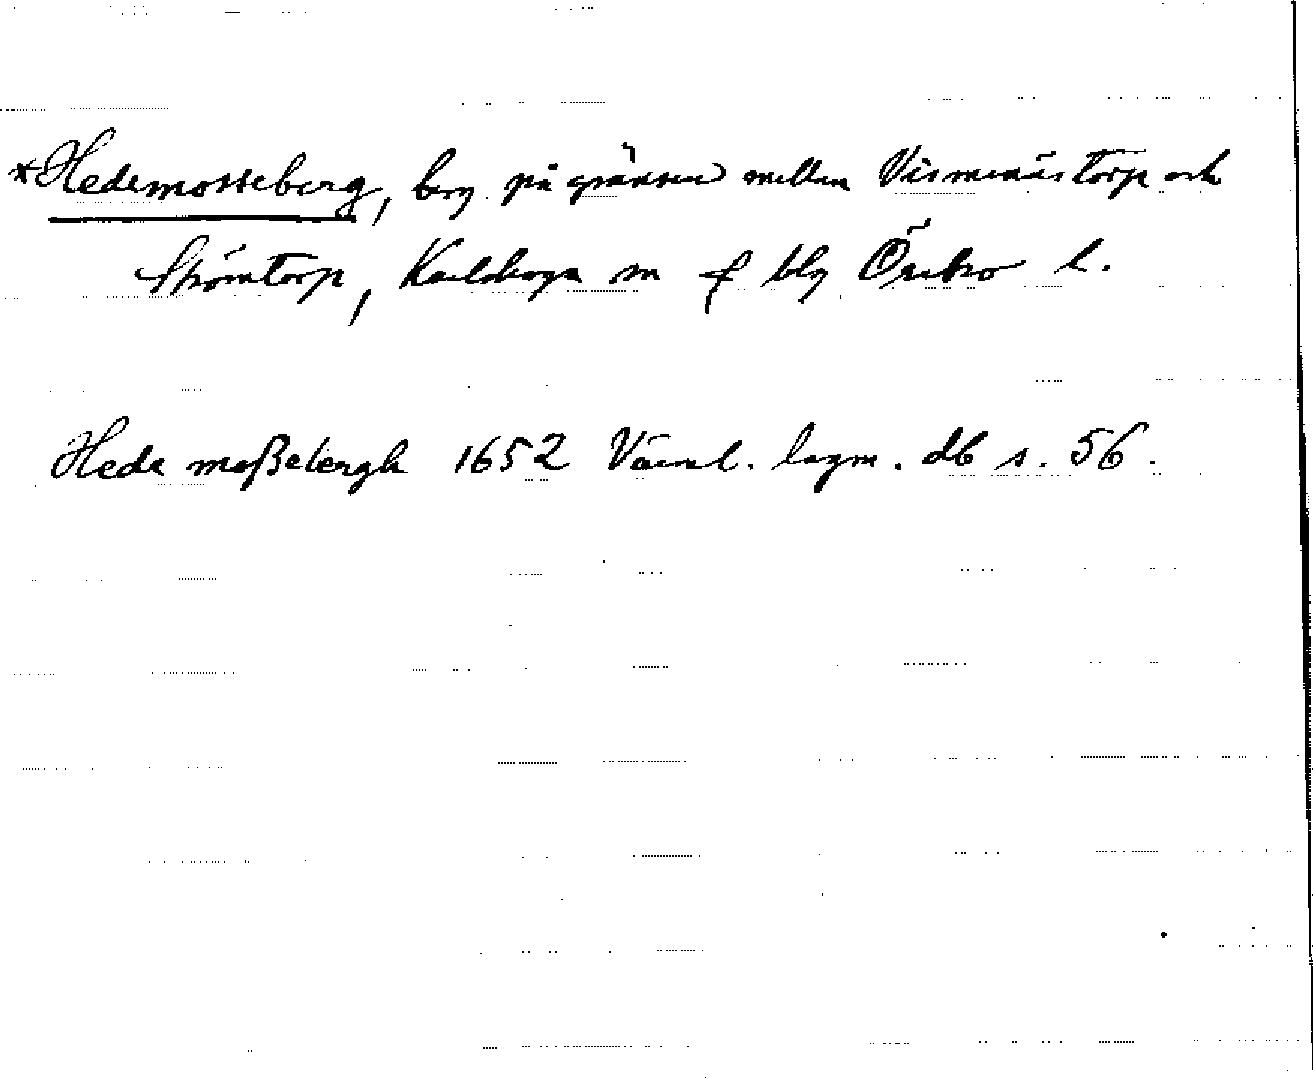 *Hedemosseberg, berg på gränsen mellan Vismenäs Torp och
Strömtorp, Karlskoga sn f blg Örebro l.
Hede moßebergh 1652 Värml. lagm. db s. 56.